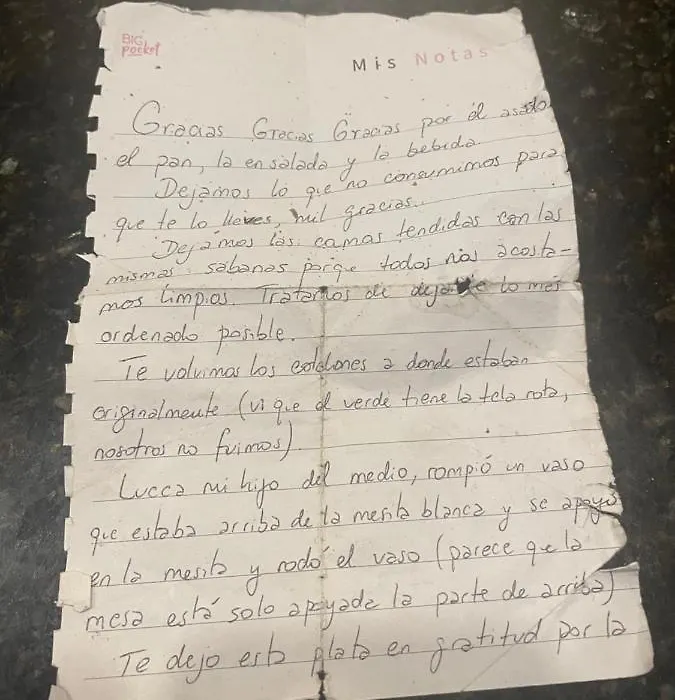 BIG
pocket
Mis Notas
Gracias Gracias Gracias por el asado
el pan, la ensalada y la bebida.
Dejamos lo que no consumimos para
que te lo lleves, mil gracias.
Dejamos las camas tendidas con las
mismas sábanas porque todos nos acosta-
mos limpios. Tratamos de dejarte lo más
ordenado posible.
Te volvimos los colchones a donde estaban
originalmente (vi que el verde tiene la tela rota,
nosotros no fuimos)
Lucca mi hijo del medio, rompió un vaso
que estaba arriba de la mesita blanca y se apoyó
en la mesita y rodó el vaso (parece que la
mesa está solo apoyada la parte de arriba)
Te dejo esta plata en gratitud por la